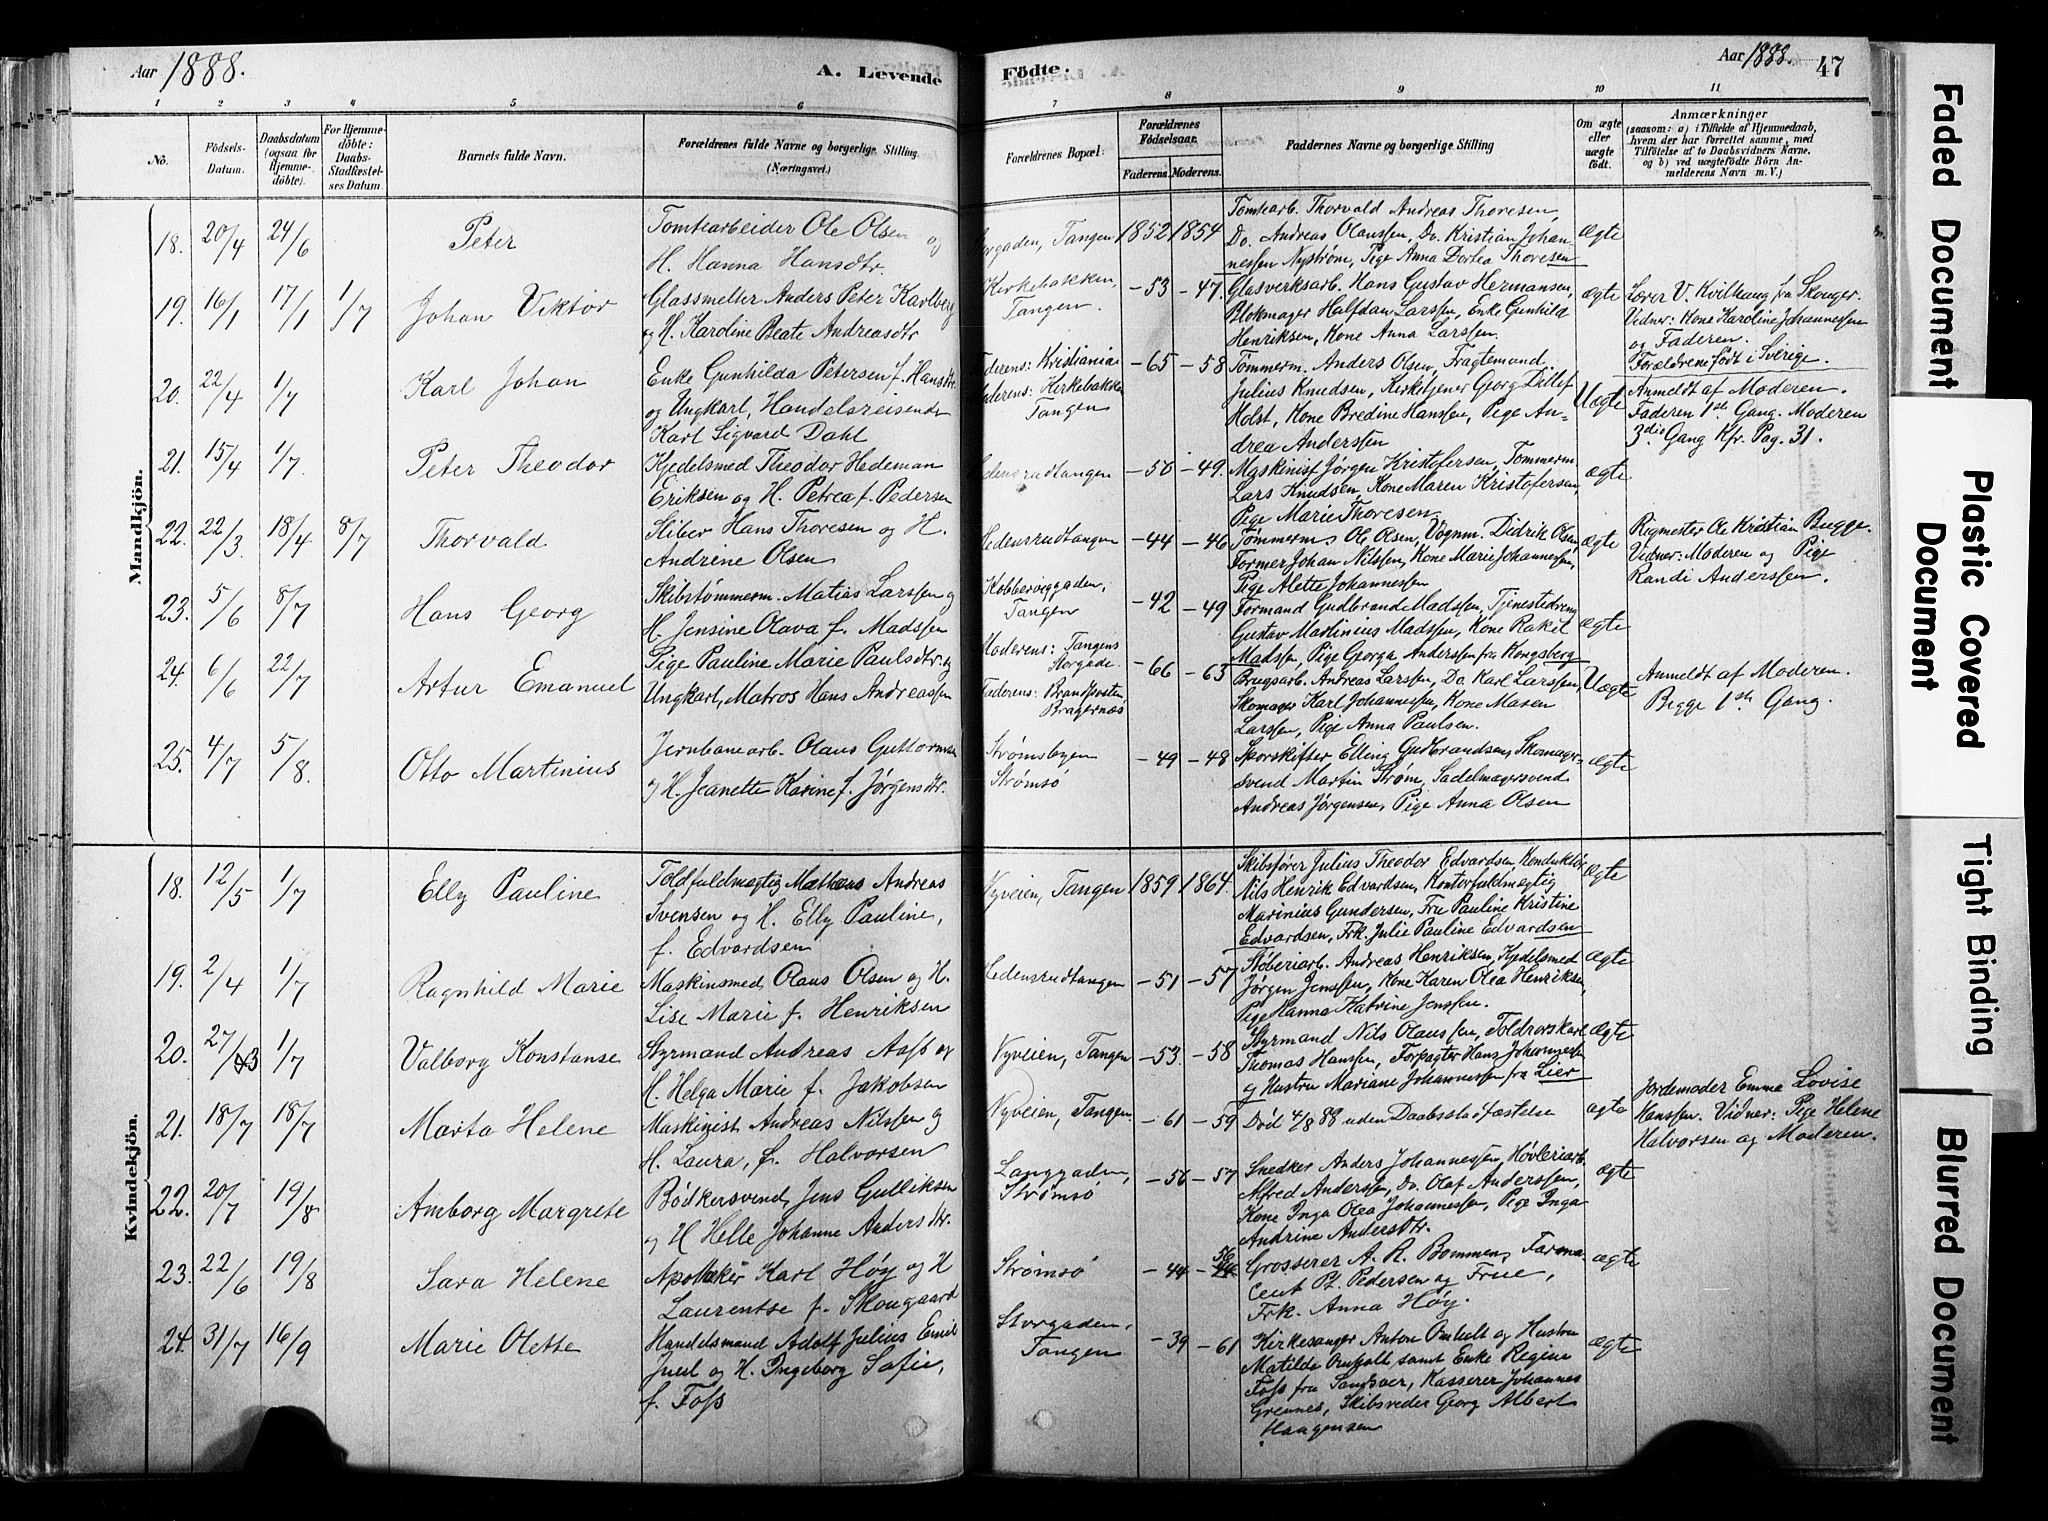 Aar 1888.
A. Levende
Födte.
Aar 1888.
47
1 2 3 4 5 6 7 8 9 10 11
No.
Födsels-
Datum.
Daabsdatum
(ogsaa for
Hjemme-
döbte).
For Hjemme-
döbte:
Daabs-
Stadfæstel-
ses Datum.
Barnets fulde Navn.
Forældrenes fulde Navne og borgerlige Stilling.
(Næringsvei.)
Forældrenes Bopæl.
Forældrenes
Födselsaar.
Faderens. Moderens.
Faddernes Navne og borgerlige Stilling
Om ægte
eller
uægte
født.
Anmærkninger
(saasom: a) i Tilfælde af Hjemmedaab,
hvem der har forrettet samme, med
Tilföielse af to Daabsvidners Navne,
og b) ved uægtefödte Börn An-
melderens Navn m. V.)
Mandkjön.
18. 20/4 24/6 Peter
Tomtearbeider Ole Olsen og
H. Hanna Hansdtr.
Storgaden, Tangen 1852 1854
Tomtearb. Thorvald Andreas Thoresen,
Do. Andreas Olaussen, Do. Kristian Johan-
nessen Nystrøm, Pige Anna Dortea Thoresen
ægte
19. 16/1 17/1 1/7 Johan Viktor
Glassmelter Anders Peter Karlberg
og H. Karoline Beate Andreasdtr
Kirkebakken,
Tangen.
-53 -47.
Glasverksarb. Hans Gustav Hermansen,
Blokmager Halfdan Larssen, Enke Gunhild
Henriksen, Kone Anna Larssen.
ægte
Lærer V. Kvilhaug fra Skoger.
Vidner: Kone Karoline Johannessen
og Faderen.
Forældrene født i Sverige.
20. 22/4 1/7 Karl Johan
Enke Gunhilda Petersen f. Hansdtr.
og Ungkarl, Handelsreisende
Karl Sigvard Dahl
Faderens: Kristiania
Moderens: Kirkebakken
Tangen
-65 -58
Tømmerm. Anders Olsen, Fragtemand
Julius Knudsen, Kirketjener Georg Ditlef
Holst, Kone Bredine Hanssen, Pige An-
drea Anderssen
Uægte
Anmeldt af Moderen.
Faderen 1st Gang. Moderen
3die Gang Kfr. Pag. 31.
21. 15/4 1/7. Peter Theodor
Kjedelsmed Theodor Hedeman
Eriksen og H. Petrea f. Pedersen
Hedensrudtangen -50 -49.
Maskinist Jørgen Kristofersen, Tømmerm.
Lars Knudsen, Kone Maren Kristofersen,
Pige Marie Thoresen
ægte
22. 22/3. 18/4 8/7 Thorvald
Sliber Hans Thoresen og H.
Andrene Olsen
Hedensrudtangen -44 -46
Tømmerm. Ole Olsen, Vognm. Didrik Olsen
Former Johan Nilssen, Kone Marie Johannessen,
Pige Alette Johannessen
ægte
Rigmester Ole Kristian Bugge.
Vidner: Moderen og Pige
Randi Anderssen.
23. 5/6 8/7 Hans Georg
Skibstømmerm. Matias Larssen og
H. Jensine Olava f. Madssen
Kobberviggaden,
Tangen
-42 -49
Formand Gudbrand Madssen, Tjenestedreng
Gustav Martinius Madssen, Kone Rakel
Madssen, Pige Georga Anderssen fra Kongsberg
ægte
24. 6/6 22/7 Artur Emanuel
Pige Pauline Marie Paulsdtr. og
Ungkarl, Matros Hans Andreassen
Moderens: Tangens
Storgade.
Faderens: Brandposten
Bragernæs
-66 -65
Brugsarb. Andreas Larssen, Do. Karl Larssen,
Skomager Karl Johannessen, Kone Maren
Larssen, Pige Anna Paulsen.
Uægte
Anmeldt af Moderen.
Begge 1st Gang.
25. 4/7 5/8. Otto Martinius
Jernbanearb. Olaus Guttormsen
og H. Jeanette Karine f. Jørgensdtr.
Strømsbyen
Strømsø
-49 -48
Sporskifter Elling Gudbrandsen, Skomager-
svend Martin Strøm, Sadelmagersvend
Andreas Jørgensen, Pige Anna Olsen
ægte
Kvindekjön.
18. 12/5 1/7 Elly Pauline
Toldfuldmægtig Matheus Andreas
Svensen og H. Elly Pauline,
f. Edvardsen
Nyveien, Tangen 1859 1864.
Skibsfører Julius Theodor Edvardsen, Konduktør
Nils Henrik Edvardsen, Kontorfuldmægtig
Marinius Gundersen, Fru Pauline Kristine
Edvardsen, Frk. Julie Pauline Edvardsen
Ægte
19. 2/4 1/7 Ragnhild Marie
Maskinsmed Olaus Olsen og H.
Lise Marie f. Henriksen
Hedensrudtangen -51 -57
Støberiarb. Andreas Henriksen, Kjedelsmed
Jørgen Jenssen, Kone Karen Olea Henriksen,
Pige Hanna Katrine Jenssen.
ægte
20. 27/3 1/7 Valborg Konstanse
Styrmand Andreas Aass og
H. Helga Marie f. Jakobsen
Nyveien, Tangen -53. -58
Styrmand Nils Olaussen, Toldrorskarl
Thomas Hanssen, Forpagter Hans Johannessen
og Hustru Mariane Johannessen fra Lier
Ægte
21. 18/7 18/7 Marta Helene
Maskinist Andreas Nilssen og
H. Laura, f. Halvorsen
Nyveien, Tangen. -61 -59
Død 4/8 88 uden Daabsstadfæstelse
ægte
Jordemoder Emma Lovise
Hanssen. Vidner: Pige Helene
Halvorsen og Moderen.
22. 20/7 19/8 Amborg Margrete
Bødkersvend Jens Gulliksen
og H Helle Johanne Andersdtr.
Langgaden,
Strømsø
-56 -57
Snedker Anders Johannessen, Høvleriarb.
Alfred Anderssen, Do. Olaf Anderssen,
Kone Inga Olea Johannessen, Pige Inga
Andrine Andersdtr.
ægte
23. 22/6 19/8 Sara Helene
Apotheker Karl Høy og H
Laurentse f. Skougaard
Strømsø -44 -56
Grosserer A. R. Bommen, Farma-
ceut Pt. Pedersen og Frue,
Frk. Anna Høy.
ægte
24. 31/7 16/9 Marie Olette
Handelsmand Adolf Julius Emil
Juel og H. Ingeborg Sofie,
f. Foss
Storgaden,
Tangen
-39 -61
Kirkesanger Anton Omholt og Hustru
Matilde Omholt samt Enke Regine
Foss fra Sandsvær, Kasserer Johannes
Grennes, Skibsreder Georg Albert
Haagensen
ægte
Faded Document
Plastic Covered
Document
Tight Binding
Blurred Document